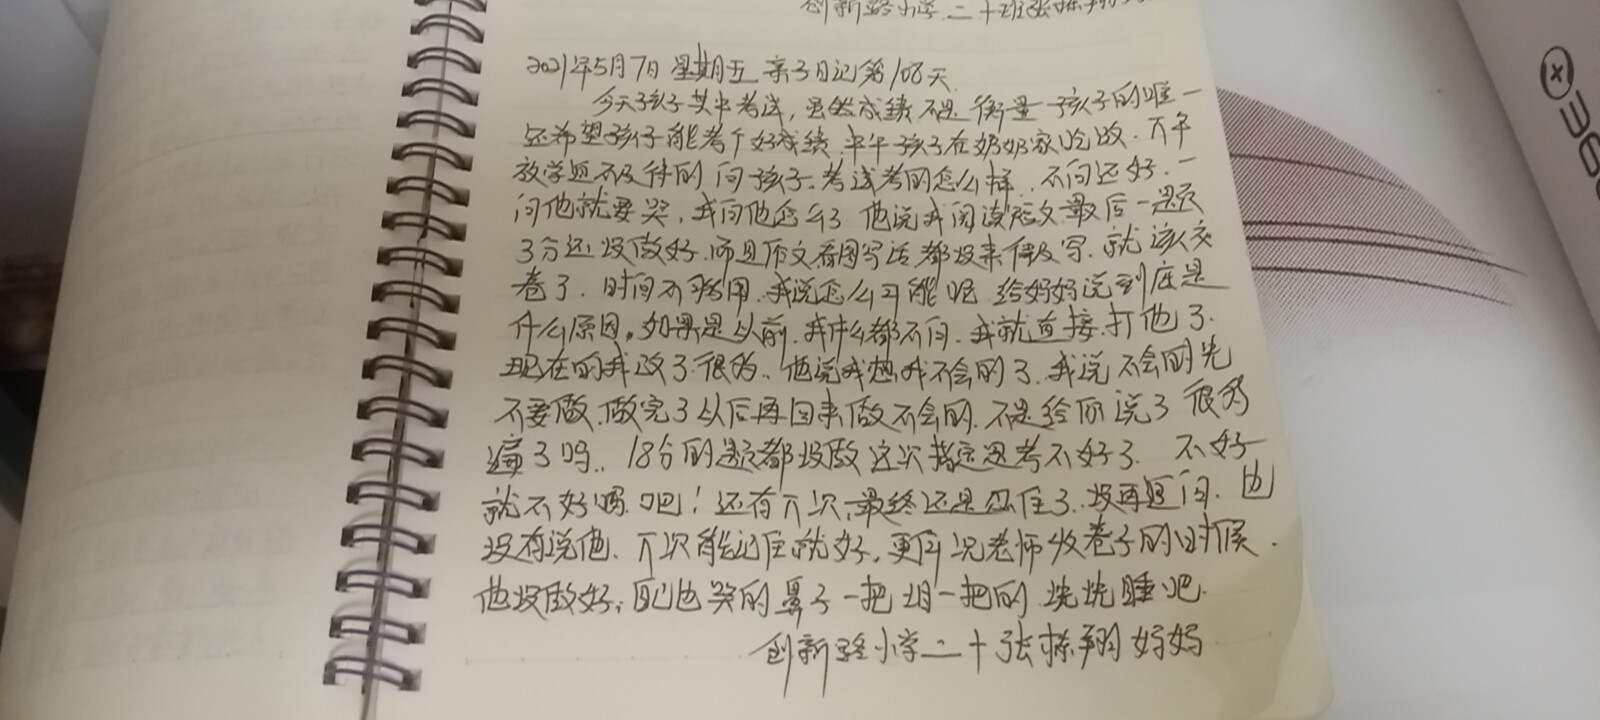 创新路小学二十班张栋翔
2021年5月7日 星期五 亲子日记第108天
今天孩子其中考试，虽然成绩不是衡量孩子的唯一
还希望孩子能考个好成绩.中午孩子在奶奶家吃饭.下午
放学迫不及待的问孩子.考试考的怎么样.不问还好.一
问他就要哭，我问他怎么了他说我阅读短文最后一题
3分还没做好.而且作文看图写话都没来得及写.就该交
卷了.时间不够用.我说怎么可能呢.给妈妈说到底是
什么原因。如果是以前.我什么都不问.我就直接打他了.
现在的我改了很多.他说我想我不会的了.我说不会的先
不要做.做完了以后再回来做不会的.不是给你说了很多
遍了吗..18分的题都没做这次指定思考不好了.不好
就不好吧！还有下次，最终还是忍住了.没再追问.也
没有说他.下次能记住就好.更何况老师收卷子的时候.
他没做好，已也哭的鼻子一把泪一把的.洗洗睡吧.
创新路小学二十张栋翔妈妈
360